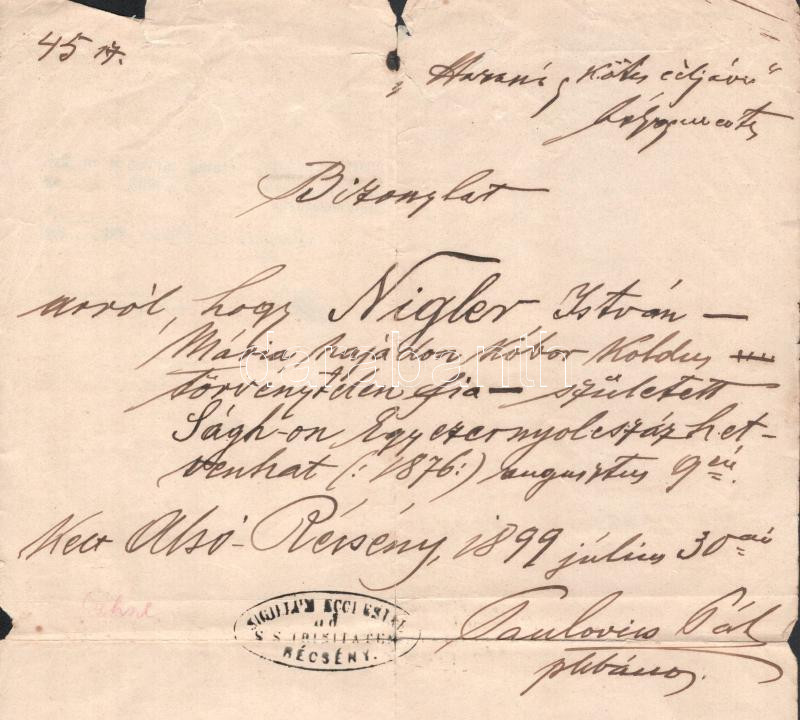 45 
„Haszná „Kötés céljává"
bélyegmentes
Bizonylat
arról, hogy Nigler István —
Mária hajadon kóbor koldus
törvénytelen fia — született
Ságh-on Egyezernyolcszázhet-
venhat (: 1876 :) augusztus 9én.
Kelt Alsó-Récsény, 1899 július 30án
SIGILLUM ECCLESIAE
ad
S.S. TRINITATEM
RÉCSÉNY.
Paulovics Pál
plébános.
darabanth